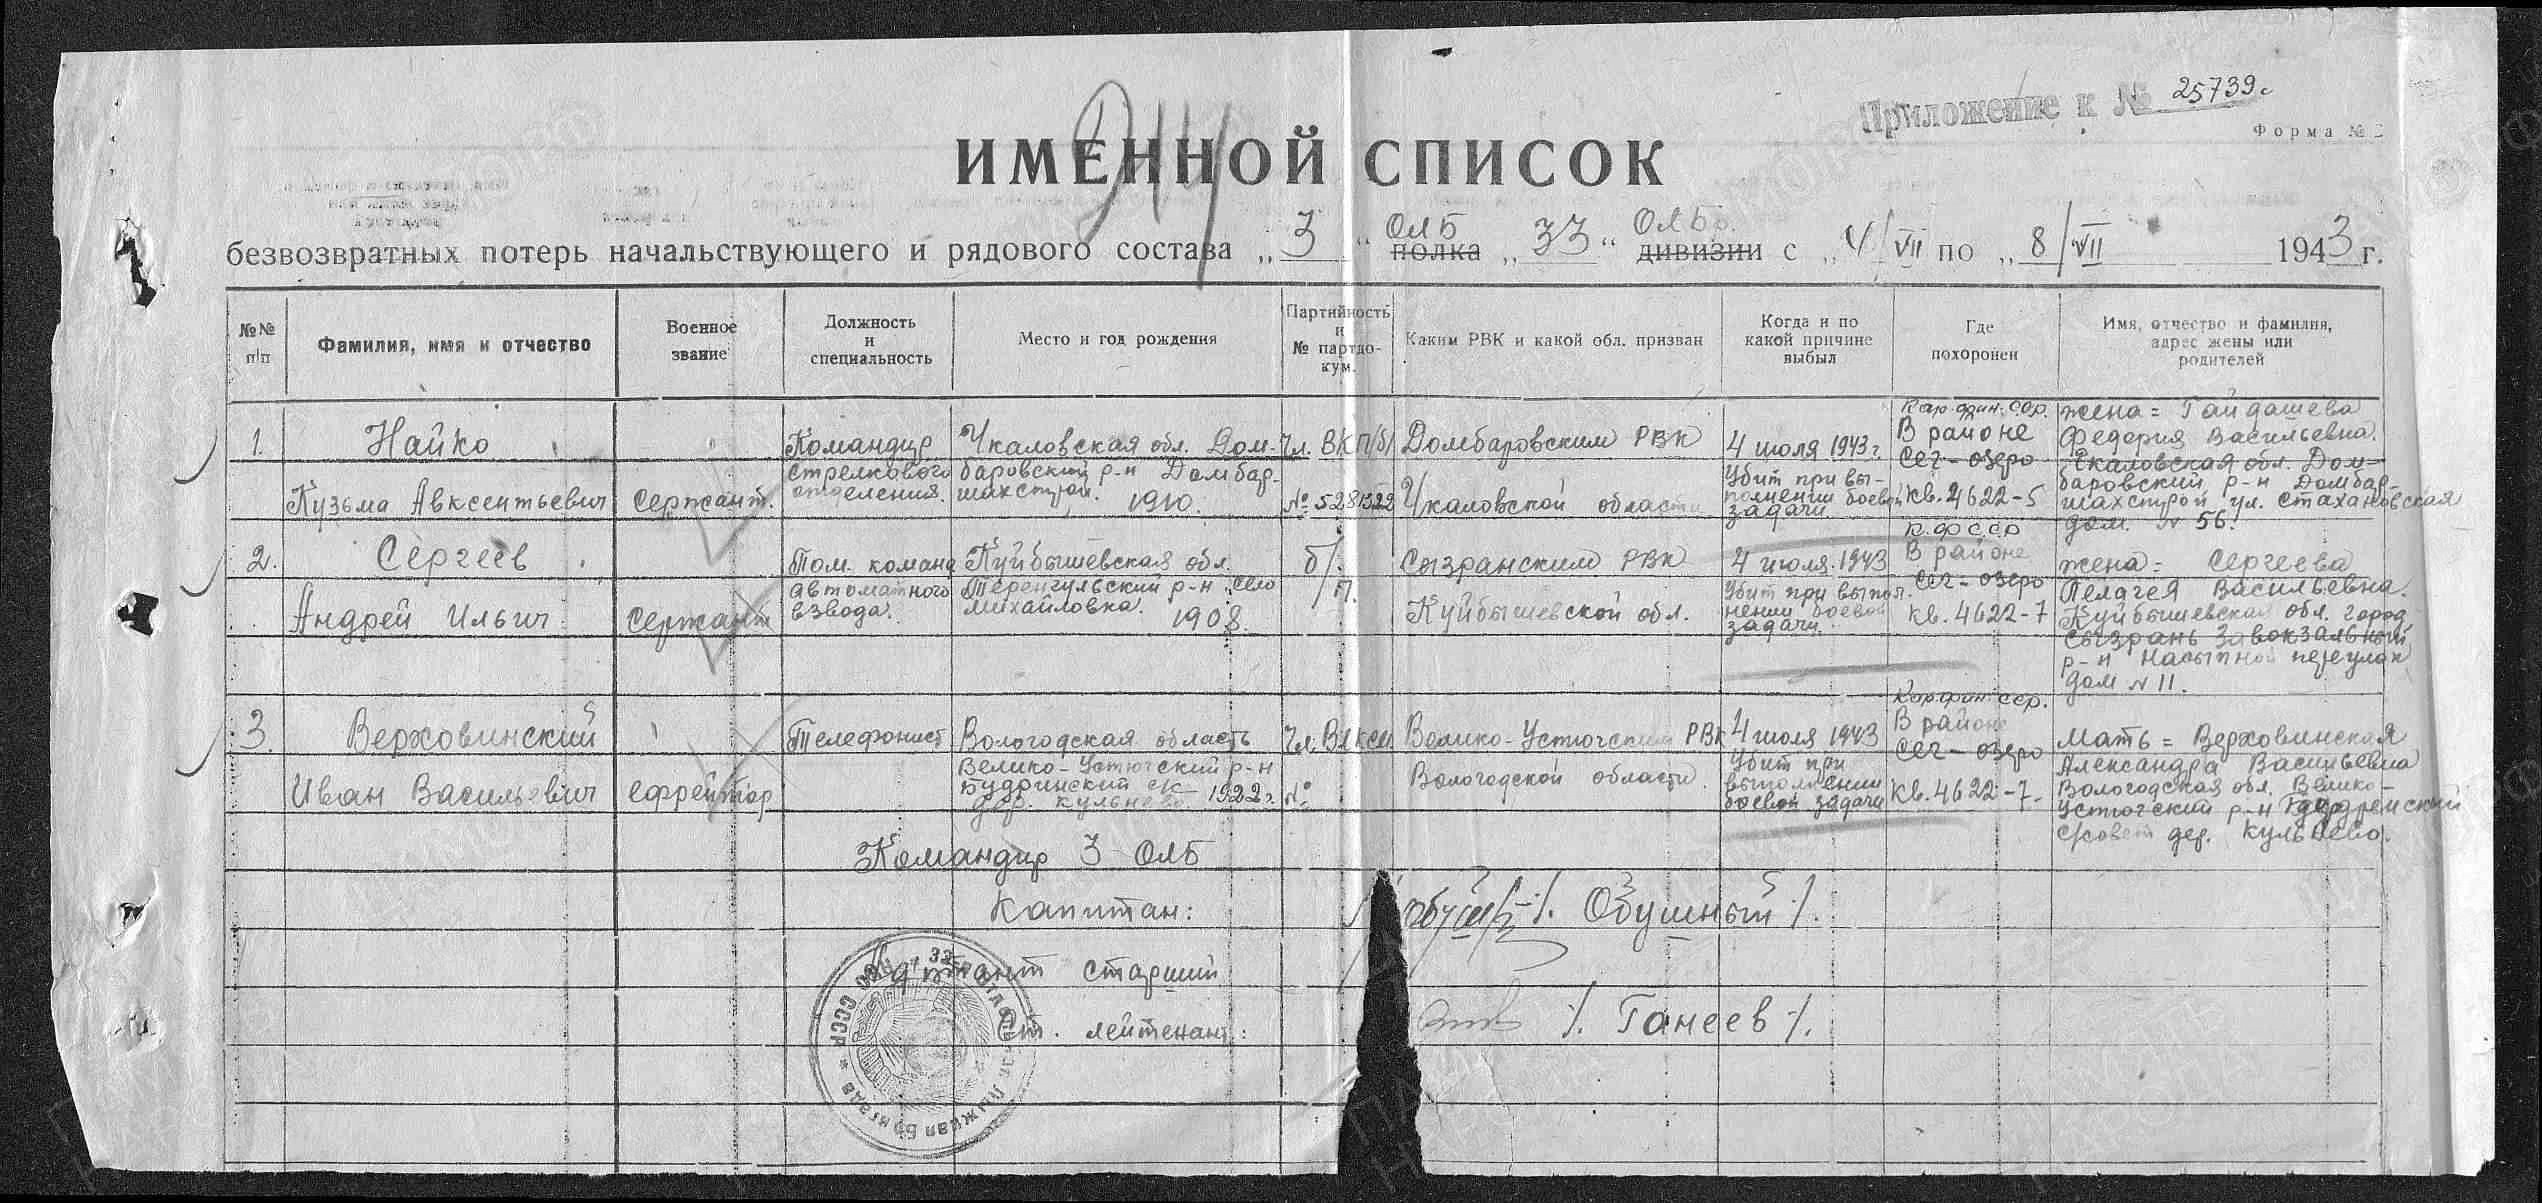 Приложение к № 25739с
Форма № 2
ИМЕННОЙ СПИСОК
безвозвратных потерь начальствующего и рядового состава „3“ ОЛБ полка „33“ ОЛБр. дивизии с „4/VII по „8/VII 1943 г.
№№ п/п
Фамилия, имя и отчество
Военное звание
Должность и специальность
Место и год рождения
Партийность и № партдокум.
Каким РВК и какой обл. призван
Когда и по какой причине выбыл
Где похоронен
Имя, отчество и фамилия, адрес жены или родителей
1.
Найко
Кузьма Авксентьевич
сержант.
Командир
стрелкового
отделения.
Чкаловская обл. Дом-
баровский р-н Домбар-
шахстрой.
1910.
Чл. ВКП/б/
№ 5281322
Домбаровским РВК
Чкаловской области
4 июля 1943 г.
Убит при вы-
полнении боевой
задачи
Кар. фин. сср.
В районе
Сег-озеро
кв. 4622-5
жена = Гайдашева
Федерия Васильевна.
Чкаловская обл. Дом-
баровский р-н Домбар-
шахстрой ул. Стахановская
дом. № 56.
2.
Сергеев
Андрей Ильич
сержант
Пом. команд
автоматного
взвода.
Куйбышевская обл.
Теренгульский р-н село
Михайловка.
1908.
б/п.
Сызранским РВК
Куйбышевской обл.
4 июля. 1943
Убит при выпол-
нении боевой
задачи.
К.ФССР
В районе
Сег-озеро
кв. 4622-7
жена = Сергеева
Пелагея Васильевна.
Куйбышевская обл. город
Сызрань Завокзальный
р-н Насыпной переулок
дом № 11.
3.
Верховинский
Иван Васильевич
ефрейтор
Телефонист
Вологодская область
Велико-Устюгский р-н
Будринский с/с
дер. Кульнево. 1922 г.
Чл. ВЛКСМ
№
Велико-Устюгским РВК
Вологодской области.
4 июля 1943
Убит при
выполнении
боевой задачи
Кар. фин. сср.
В районе
Сег-озеро
кв. 4622-7.
Мать = Верховинская
Александра Васильевна
Вологодская обл. Велико-
Устюгский р-н
с/совет дер. Кульнево.
Командир 3 ОЛБ
Капитан: /. Обушный /.
Адютант старший
Ст. лейтенант: /. Ганеев /.
СССР * 33 Отдельная Лыжная Бригада *